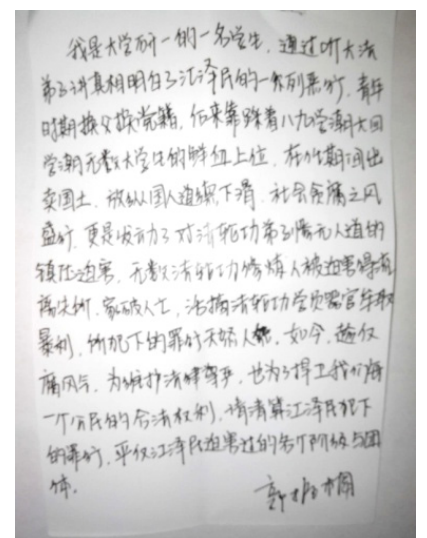 我是大学研一的一名学生，通过听大法
弟子讲真相明白了江泽民的一系列恶行，青年
时期换父换党籍，后来靠踩着八九学潮大
学潮无数大学生的鲜血上位，在此期间出
卖国土，放纵国人道德下滑，社会贪腐之风
盛行，更是发动了对法轮功弟子惨无人道的
镇压迫害，无数法轮功修炼人被迫害得流
离失所，家破人亡，活摘法轮功学员器官牟取
暴利，所犯下的罪行天怒人怨，如今，
腐风气，为维护法律尊严，也为了捍卫我们每
一个公民的合法权利，请清算江泽民犯下
的罪行，平反江泽民迫害过的各个阶级与团
体。